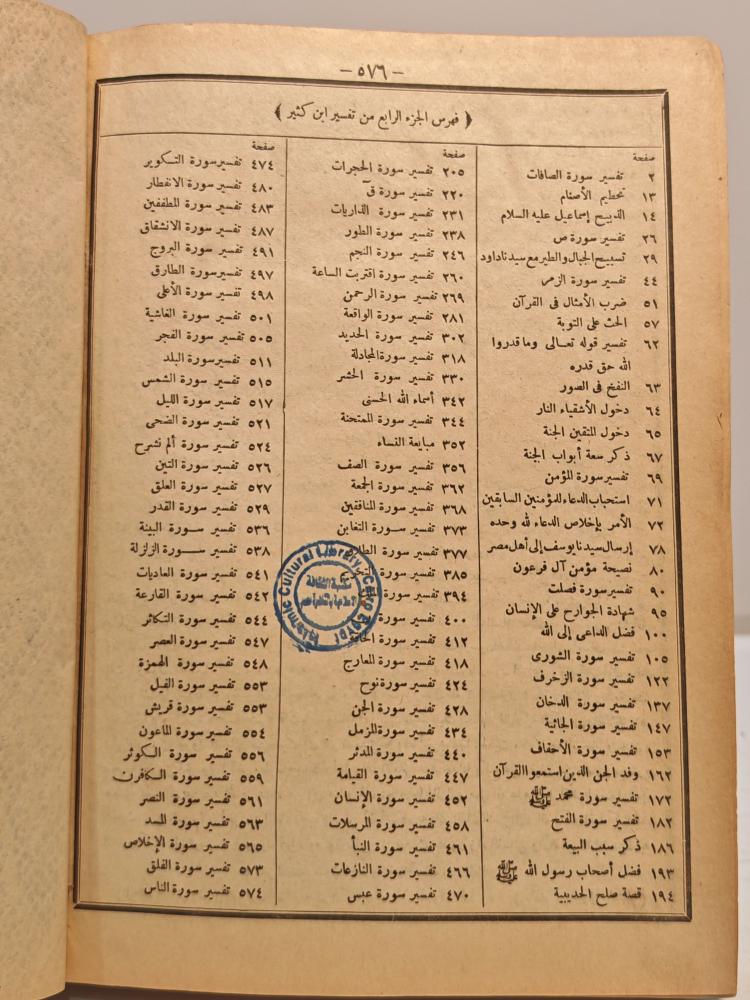 — ٥٧٦ —
﴿ فهرس الجزء الرابع من تفسير ابن كثير ﴾
صفحة
٢ تفسير سورة الصافات
١٣ تحطيم الأصنام
١٤ الذبيح إسماعيل عليه السلام
٢٦ تفسير سورة ص
٢٩ تسبيح الجبال والطير مع سيدنا داود
٤٤ تفسير سورة الزمر
٥١ ضرب الأمثال فى القرآن
٥٧ الحث على التوبة
٦٢ تفسير قوله تعالى وما قدروا
الله حق قدره
٦٣ النفخ فى الصور
٦٤ دخول الأشقياء النار
٦٥ دخول المتقين الجنة
٦٧ ذكر سعة أبواب الجنة
٦٩ تفسير سورة المؤمن
٧١ استحباب الدعاء للمؤمنين السابقين
٧٢ الأمر بإخلاص الدعاء لله وحده
٧٨ إرسال سيدنا يوسف إلى أهل مصر
٨٠ نصيحة مؤمن آل فرعون
٩٠ تفسير سورة فصلت
٩٥ شهادة الجوارح على الإنسان
١٠٠ فضل الداعى إلى الله
١٠٥ تفسير سورة الشورى
١٢٢ تفسير سورة الزخرف
١٣٧ تفسير سورة الدخان
١٤٧ تفسير سورة الجاثية
١٥٣ تفسير سورة الأحقاف
١٦٢ وفد الجن الذين استمعوا القرآن
١٧٢ تفسير سورة محمد ﷺ
١٨٢ تفسير سورة الفتح
١٨٦ ذكر سبب البيعة
١٩٣ فضل أصحاب رسول الله ﷺ
١٩٤ قصة صلح الحديبية
صفحة
٢٠٥ تفسير سورة الحجرات
٢٢٠ تفسير سورة قٓ
٢٣١ تفسير سورة الذاريات
٢٣٨ تفسير سورة الطور
٢٤٦ تفسير سورة النجم
٢٦٠ تفسير سورة اقتربت الساعة
٢٦٩ تفسير سورة الرحمن
٢٨١ تفسير سورة الواقعة
٣٠٢ تفسير سورة الحديد
٣١٨ تفسير سورة المجادلة
٣٣٠ تفسير سورة الحشر
٣٤٢ أسماء الله الحسنى
٣٤٤ تفسير سورة الممتحنة
٣٥٢ مبايعة النساء
٣٥٦ تفسير سورة الصف
٣٦٢ تفسير سورة الجمعة
٣٦٨ تفسير سورة المنافقين
٣٧٣ تفسير سورة التغابن
٣٧٧ تفسير سورة الطلاق
٣٨٥ تفسير سورة التحريم
٣٩٤ تفسير سورة
٤٠٠ تفسير سورة
٤١٢ تفسير سورة الحاقة
٤١٨ تفسير سورة المعارج
٤٢٤ تفسير سورة نوح
٤٢٨ تفسير سورة الجن
٤٣٤ تفسير سورة المزمل
٤٤٠ تفسير سورة المدثر
٤٤٧ تفسير سورة القيامة
٤٥٢ تفسير سورة الإنسان
٤٥٨ تفسير سورة المرسلات
٤٦١ تفسير سورة النبأ
٤٦٦ تفسير سورة النازعات
٤٧٠ تفسير سورة عبس
صفحة
٤٧٤ تفسير سورة التكوير
٤٨٠ تفسير سورة الانفطار
٤٨٣ تفسير سورة المطففين
٤٨٧ تفسير سورة الانشقاق
٤٩١ تفسير سورة البروج
٤٩٧ تفسير سورة الطارق
٤٩٨ تفسير سورة الأعلى
٥٠١ تفسير سورة الغاشية
٥٠٥ تفسير سورة الفجر
٥١١ تفسير سورة البلد
٥١٥ تفسير سورة الشمس
٥١٧ تفسير سورة الليل
٥٢١ تفسير سورة الضحى
٥٢٤ تفسير سورة ألم نشرح
٥٢٦ تفسير سورة التين
٥٢٧ تفسير سورة العلق
٥٢٩ تفسير سورة القدر
٥٣٦ تفسير سورة البينة
٥٣٨ تفسير سورة الزلزلة
٥٤١ تفسير سورة العاديات
٥٤٢ تفسير سورة القارعة
٥٤٤ تفسير سورة التكاثر
٥٤٧ تفسير سورة العصر
٥٤٨ تفسير سورة الهمزة
٥٥٣ تفسير سورة الفيل
٥٥٣ تفسير سورة قريش
٥٥٤ تفسير سورة الماعون
٥٥٦ تفسير سورة الكوثر
٥٥٩ تفسير سورة الكافرن
٥٦١ تفسير سورة النصر
٥٦٣ تفسير سورة المسد
٥٦٥ تفسير سورة الإخلاص
٥٧٣ تفسير سورة الفلق
٥٧٤ تفسير سورة الناس
Islamic Cultural Library, Cairo Egypt
مكتبة الثقافة